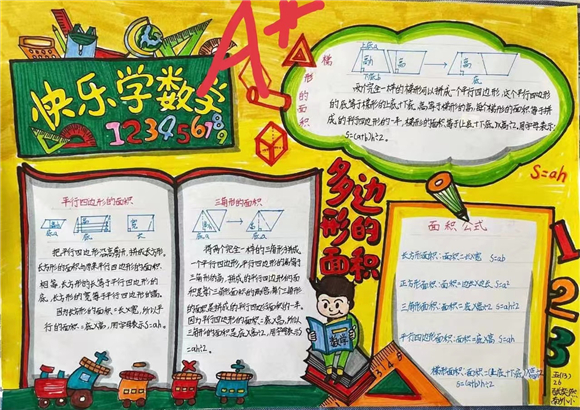 A+
快乐学数学
123456789
梯形的面积
上底a
高
下底b
高
底
两个完全一样的梯形可以拼成一个平行四边形,这个平行四边形
的底等于梯形的上底+下底,高等于梯形的高,每个梯形的面积等于拼
成的平行四边形的一半。梯形的面积等于(上底+下底)x高÷2。用字母表示:
S=(a+b)h÷2。
S=ah
平行四边形的面积
底
长
宽
把平行四边形沿高剪开,拼成长方形。
长方形的面积与原来平行四边形的面积
相等。长方形的长等于平行四边形的
底,长方形的宽等于平行四边形的高。
因为长方形的面积=长x宽,所以平
行的面积=底x高,用字母表示S=ah。
三角形的面积
高
底a
高
底a
将两个完全一样的三角形拼成
一个平行四边形,平行四边形的高等于
三角形的高,拼成的平行四边形的面
积是每个三角形面积的两倍,每个三角形
的面积是拼成的平行四边形面积的一半。
因为平行四边形的面积=底x高,所以三
角形的面积是底x高÷2。用字母表示S
=ah÷2。
多边形的面积
数学
面积公式
长方形面积:面积=长x宽 S=ab
正方形面积:面积=边长x边长 S=a²
三角形面积:面积=底x高÷2 S=ah÷2
平行四边形面积:面积=底x高 S=ah
梯形面积:面积=(上底+下底)x高÷2
S=(a+b)h÷2
123
345
五(13)
26